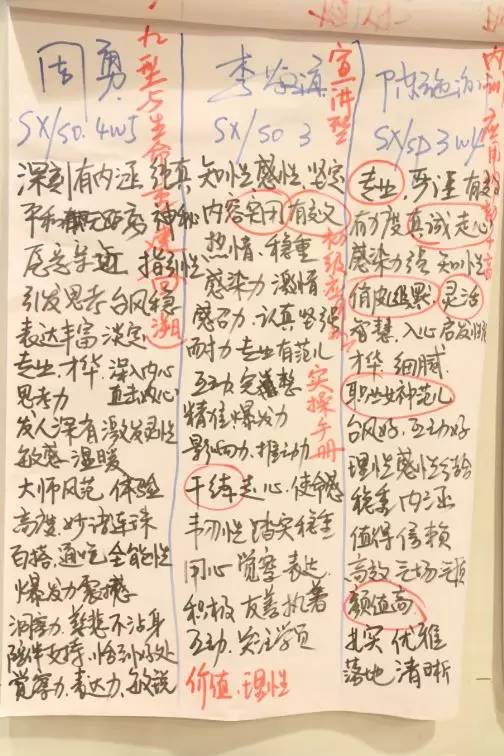 周勇
SX/SO.4W5
深刻有内涵.认真
平和 神秘
愿意亲近 指引性
引发思考 台风稳
表达丰富 淡定
专业.才华.深入内心
思考力 直击内心
发人深省激发灵性
敏感 温暖
大师风范 体验
高度.妙语连珠
百搭.通吃 全能性
爆发力 震撼
洞察力.慈悲不沾身
陪伴支持.恰到好处
觉察力.表达力.敏锐
九型与生命
李
SX/SO 3
知性感性.坚定
内容实用 有意义
热情.稳重
感染力 激情
感召力.认真坚强
耐力 专业有范儿
互动 完整
精准爆发力
影响力.推动力
干练走心.使命感
韧性踏实稳重
用心 觉察 表达
积极 友善 执着
互动.关注学员
价值.理性
宣讲型
初级应用
实操手册
陈
SX/SO 3 W4
专业.
有力度真诚走心
感染力强 知性
俏皮幽默 灵活
智慧.入心 启发性
才华 细腻
职业女神范儿
台风好.互动好
理性感性
稳重 内涵
值得信赖
高效
颜值高
扎实 优雅
落地 清晰
内
应用